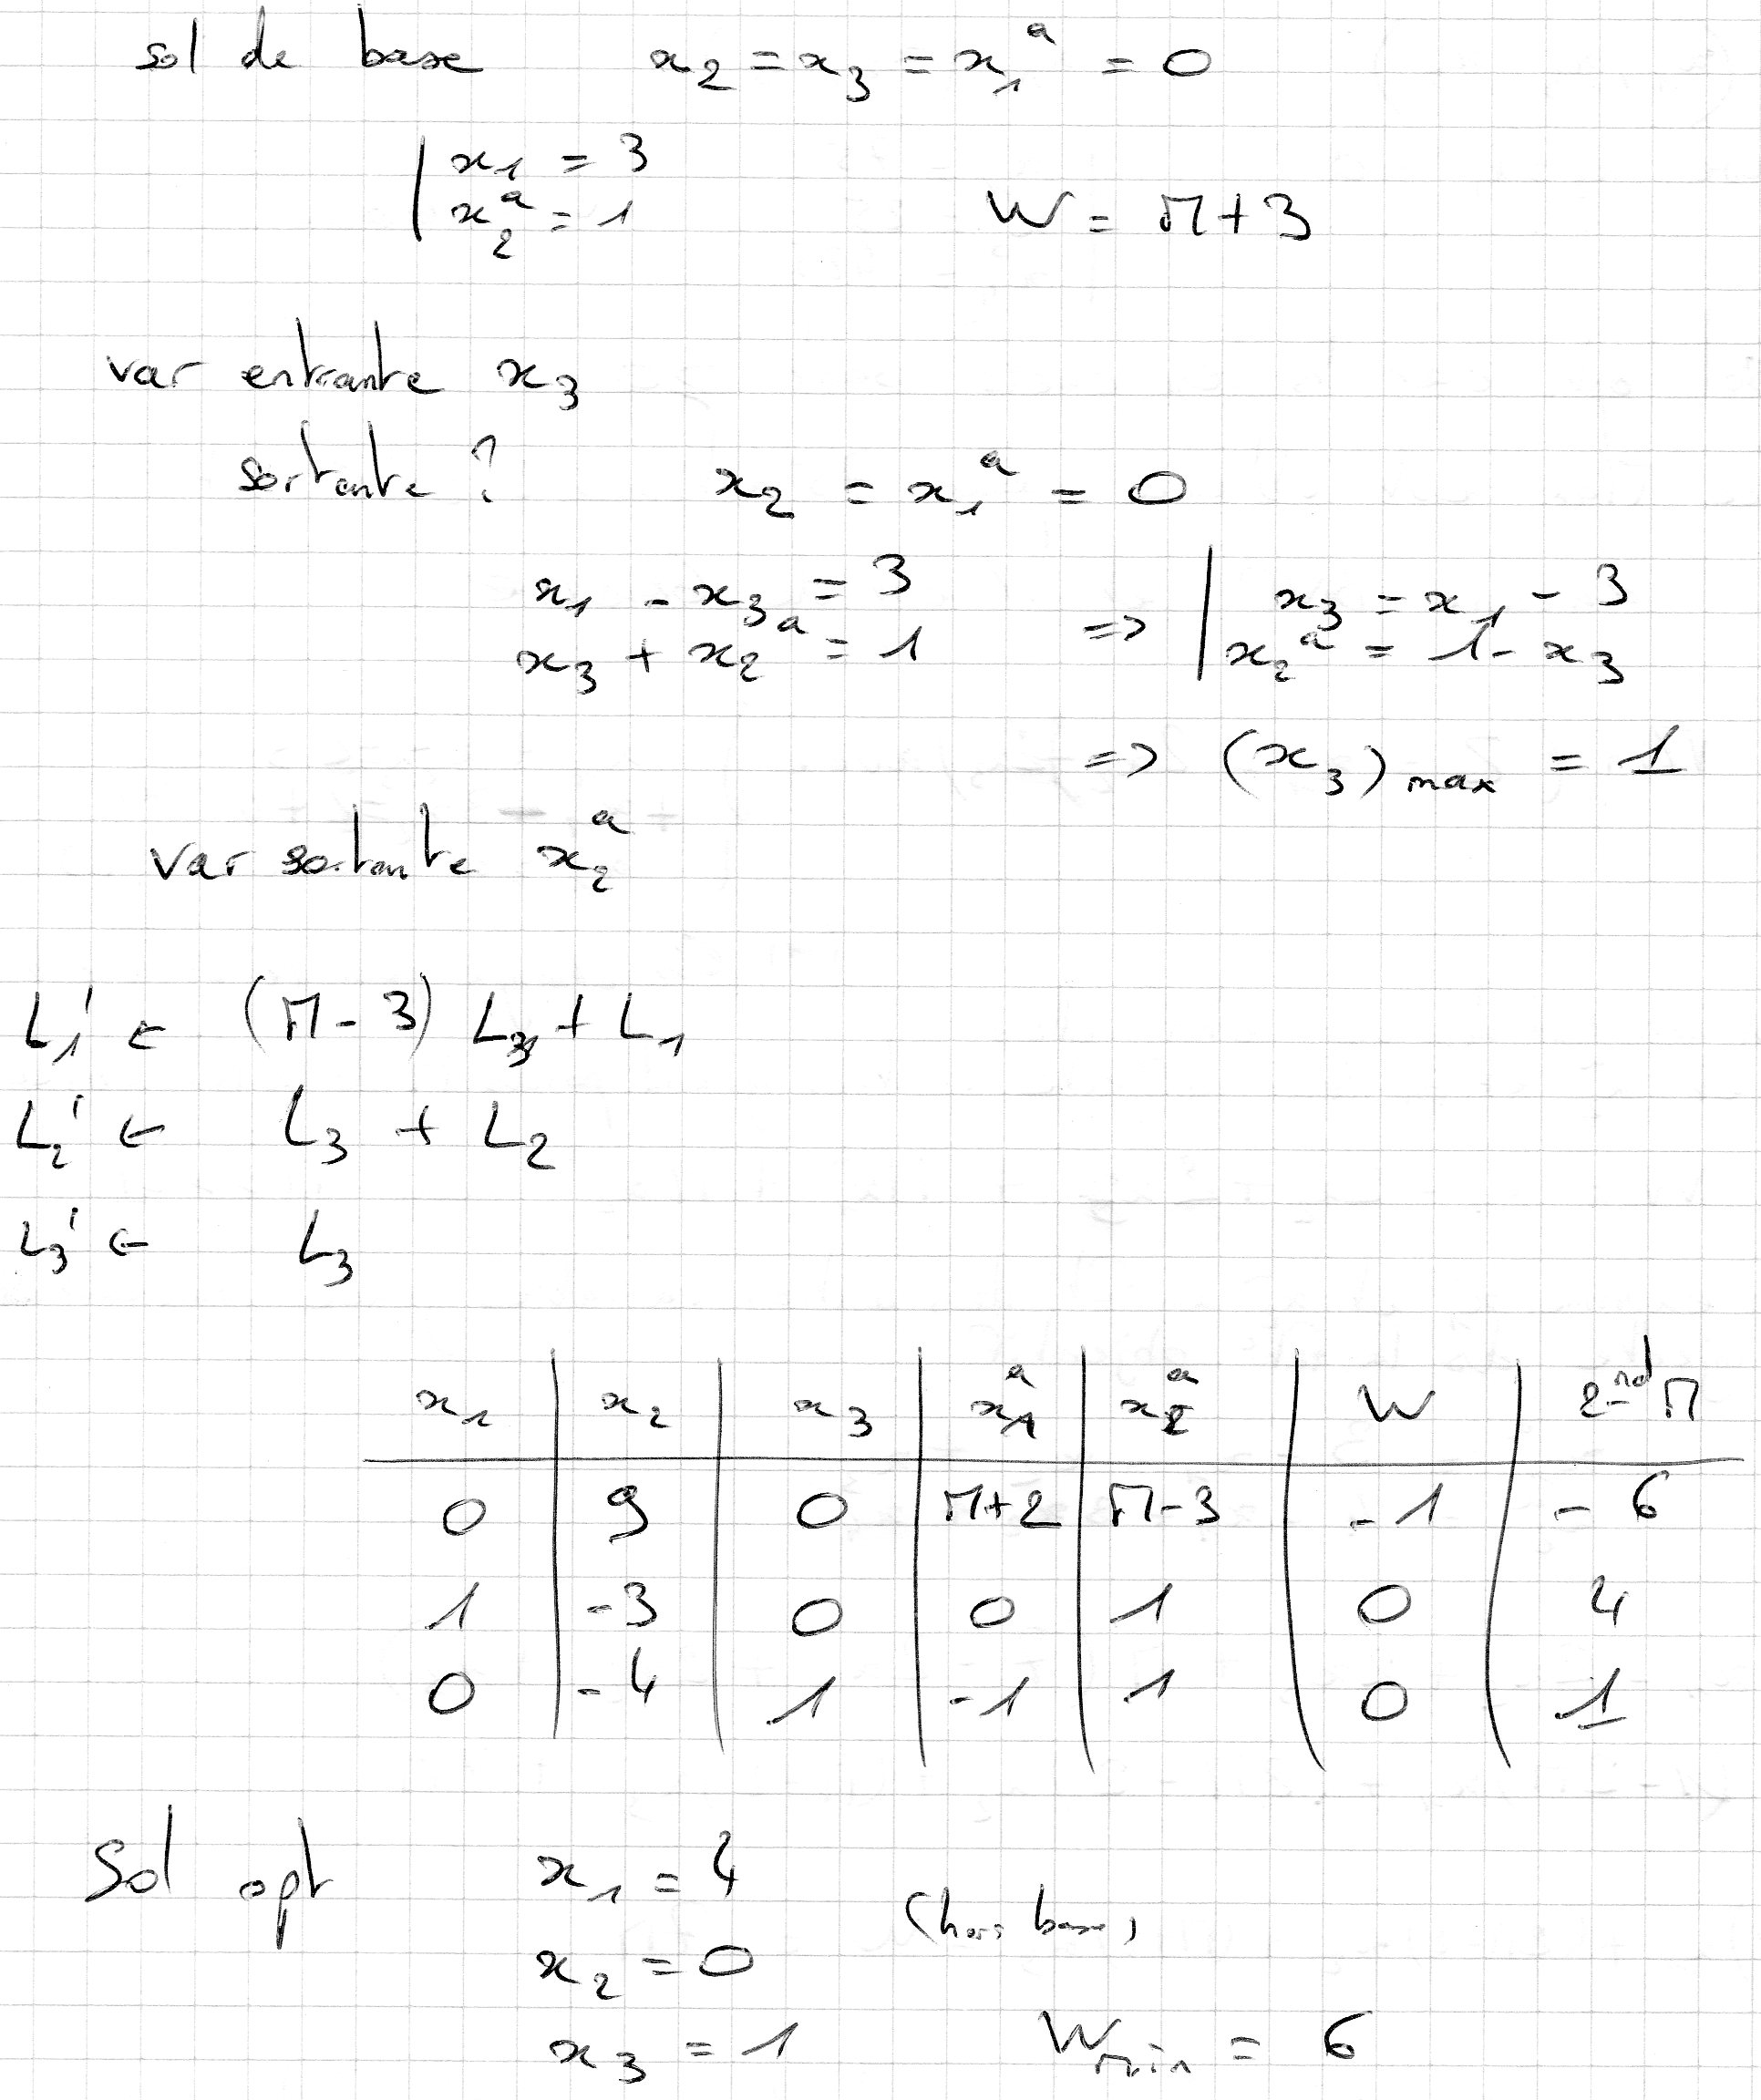 sol de base x₂ = x₃ = x₁ᵃ = 0
x₁ = 3
x₂ᵃ = 1 W = M+3
var entrante x₃
sortante ? x₂ = x₁ᵃ = 0
x₁ - x₃ = 3 => | x₃ = x₁ - 3
x₃ + x₂ᵃ = 1 | x₂ᵃ = 1 - x₃
=> (x₃) max = 1
var sortante x₂ᵃ
L₁' ← (M-3) L₃ + L₁
L₂' ← L₃ + L₂
L₃' ← L₃
x₁ | x₂ | x₃ | x₁ᵃ | x₂ᵃ | W | 2nd M
0 | 9 | 0 | M+2 | M-3 | -1 | -6
1 | -3 | 0 | 0 | 1 | 0 | 4
0 | -4 | 1 | -1 | 1 | 0 | 1
Sol opt x₁ = 4
(hors base)
x₂ = 0
x₃ = 1 Wmin = 6